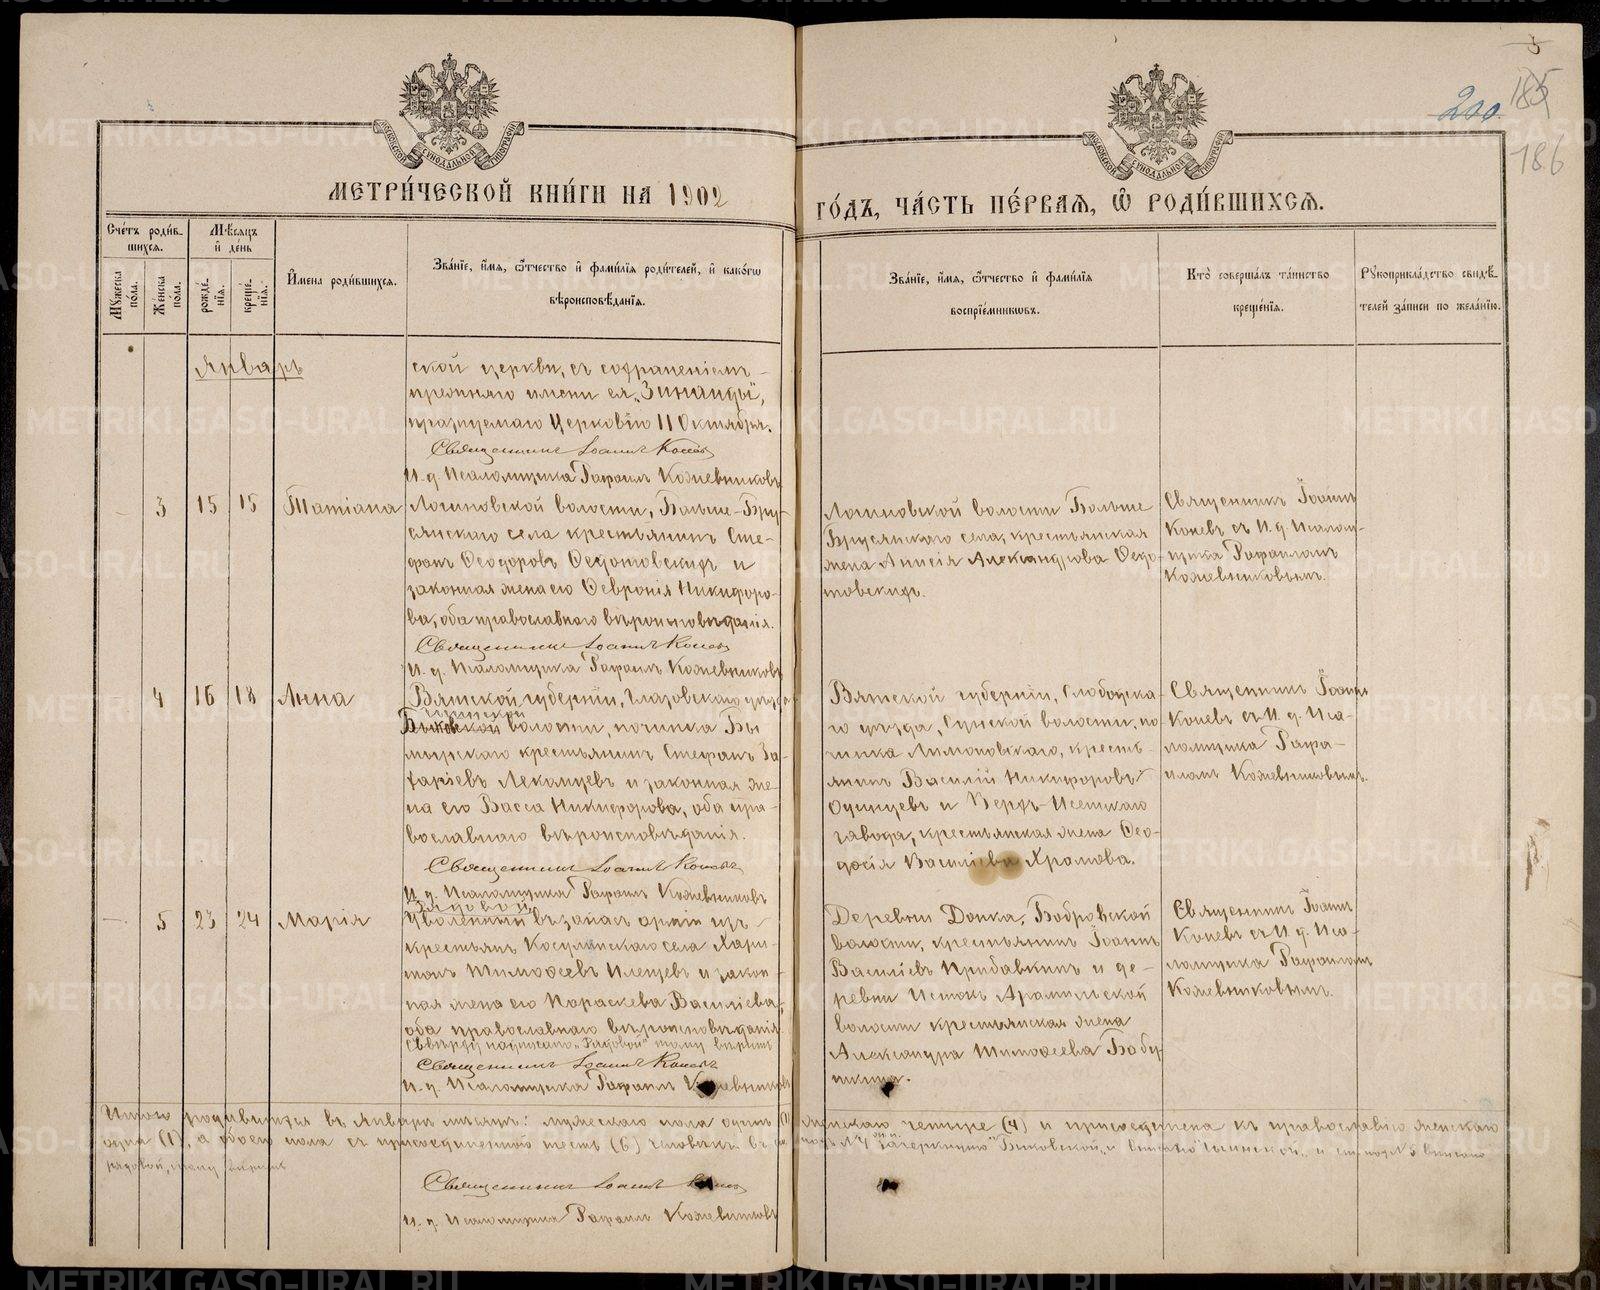 МЕТРИ́ЧЕСКОЙ КНИ́ГИ НА 1902
ГО́ДЪ, ЧА́СТЬ ПЕ́РВАѦ, Ѡ҆ РОДИ́ВШИХСѦ.
5
185
200.
186
МОСКОВСКОЙ СѴНОДАЛЬНОЙ ТИПОГРАФІИ
МОСКОВСКОЙ СѴНОДАЛЬНОЙ ТИПОГРАФІИ
Сче́тъ роди́в-
шихсѧ.
Мꙋ́жеска по́ла.
Же́нска по́ла.
Мѣ́сѧцъ
и҆ де́нь
рожде́-нїѧ.
креще́-нїѧ.
И҆мена роди́вшихсѧ.
Зва́нїе, и҆́мѧ, ѻ҆́тчество и҆ фами́лїѧ роди́телей, и҆ како́гѡ
вѣроисповѣ́данїѧ.
Зва́нїе, и҆́мѧ, ѻ҆́тчество и҆ фами́лїѧ
воспрїе́мникѡвъ.
Кто̀ соверша́лъ та́инство
креще́нїѧ.
Рꙋкоприкла́дство свидѣ́-
телей за́писи по жела́нїю.
Январь
ской церкви, съ сохраненіемъ
прежняго имени ея „Зинаиды",
празднуемаго Церковію 11 Октября.
Священникъ Іоаннъ Коневъ
И. д. Псаломщика Рафаилъ Кожевниковъ
3 15 15 Татіана
Логиновской волости, Больше-Бру-
сянскаго села крестьянинъ Сте-
фанъ Ѳеодоровъ Ѳедотовскихъ и
законная жена его Ѳевронія Никифоро-
ва, оба православнаго вѣроисповѣданія.
Священникъ Іоаннъ Коневъ
И. д. Псаломщика Рафаилъ Кожевниковъ
Логиновской волости Больше
Брусянскаго села, крестьянская
жена Анисія Александрова Ѳедо-
товскихъ.
Священникъ Іоаннъ
Коневъ съ И. д. Псалом-
щика Рафаиломъ
Кожевниковымъ.
4 16 18 Анна
Вятской губерніи, Глазовскаго уѣзда
волости, починка Бы
крестьянинъ Стефанъ За-
харіевъ Лекомцевъ и законная же-
на его Васса Никифорова, оба пра-
вославнаго вѣроисповѣданія.
Священникъ Іоаннъ Коневъ
И. д. Псаломщика Рафаилъ Кожевниковъ
Вятской губерніи, Слободска-
го уѣзда, Сунской волости, по-
чинка кресть-
янинъ Василій Никифоровъ
Одинцевъ и Верхъ-Исетскаго
завода, крестьянская жена Ѳео-
досія Василіева Хромова.
Священникъ Іоаннъ
Коневъ съ И. д. Пса-
ломщика Рафа-
иломъ Кожевниковымъ.
5 23 24 Марія
Рядовой
Уволенный въ запас арміи изъ
крестьянъ Косулинскаго села Хари-
тонъ Тимоѳеевъ Плещевъ и закон-
ная жена его Параскева Василіева,
оба православнаго вѣроисповѣданія.
Сверху надписано „Рядовой" тому вѣрить
Священникъ Іоаннъ Коневъ
И. д. Псаломщика Рафаилъ Кожевниковъ
Деревни Донка, Бобровской
волости, крестьянинъ Іоаннъ
Василіевъ Прибавкинъ и де-
ревни Истокъ Арамильской
волости крестьянская жена
Александра Тимоѳеева Бабу-
шкина.
Священникъ Іоаннъ
Коневъ съ И. д. Пса-
ломщика Рафаиломъ
Кожевниковымъ.
Итого родившихся въ Январѣ мѣсяцѣ: мужескаго пола одинъ (1) женскаго четыре (4) и присоединена къ православію женскаго
одна (1), а обоего пола съ присоединенной шесть (6) человѣкъ. Въ статьѣ подъ № 4 зачеркнуто и вписано и въ ст. подъ № 5 вписано
рядовой, тому вѣрить
Священникъ Іоаннъ Коневъ
И. д. Псаломщика Рафаилъ Кожевниковъ
METRIKI.GASO-URAL.RU